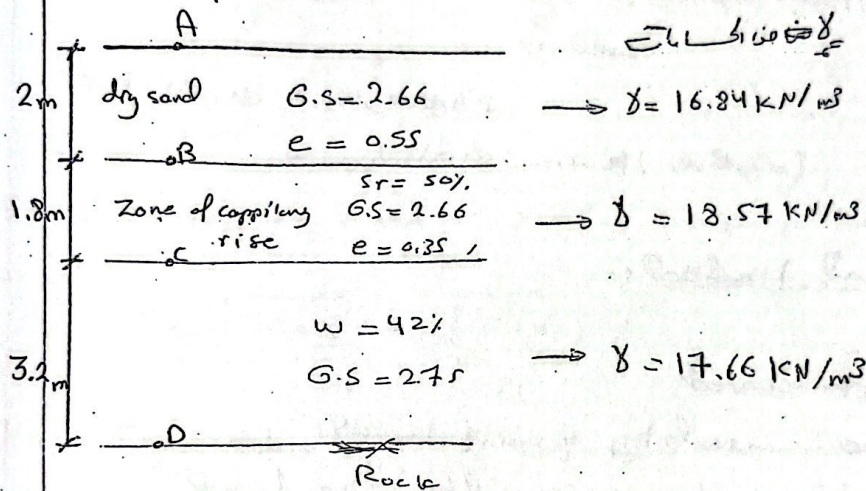 A
γ من الحسابات
2m dry sand G.S=2.66 → γ= 16.84 KN/m³
e = 0.55
B
Sr= 50%
1.8m Zone of cappilary G.S=2.66 → γ = 18.57 KN/m³
rise e = 0.35
C
w = 42%
3.2m G.S = 2.75 → γ = 17.66 KN/m³
D
Rock